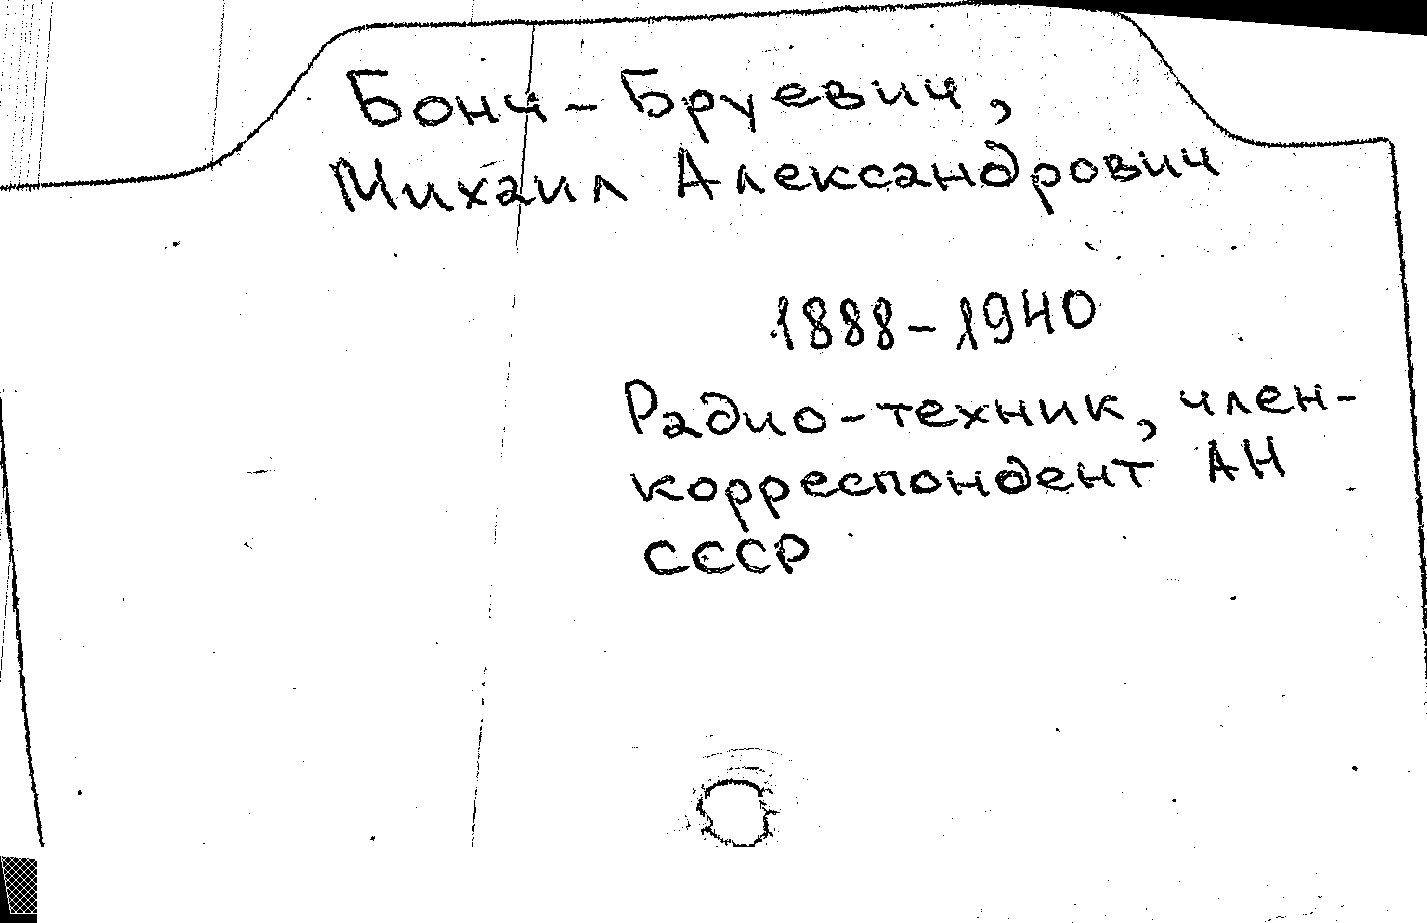 Бонч-Бруевич,
Михаил Александрович
1888-1940
Радио-техник, член-
корреспондент АН
СССР